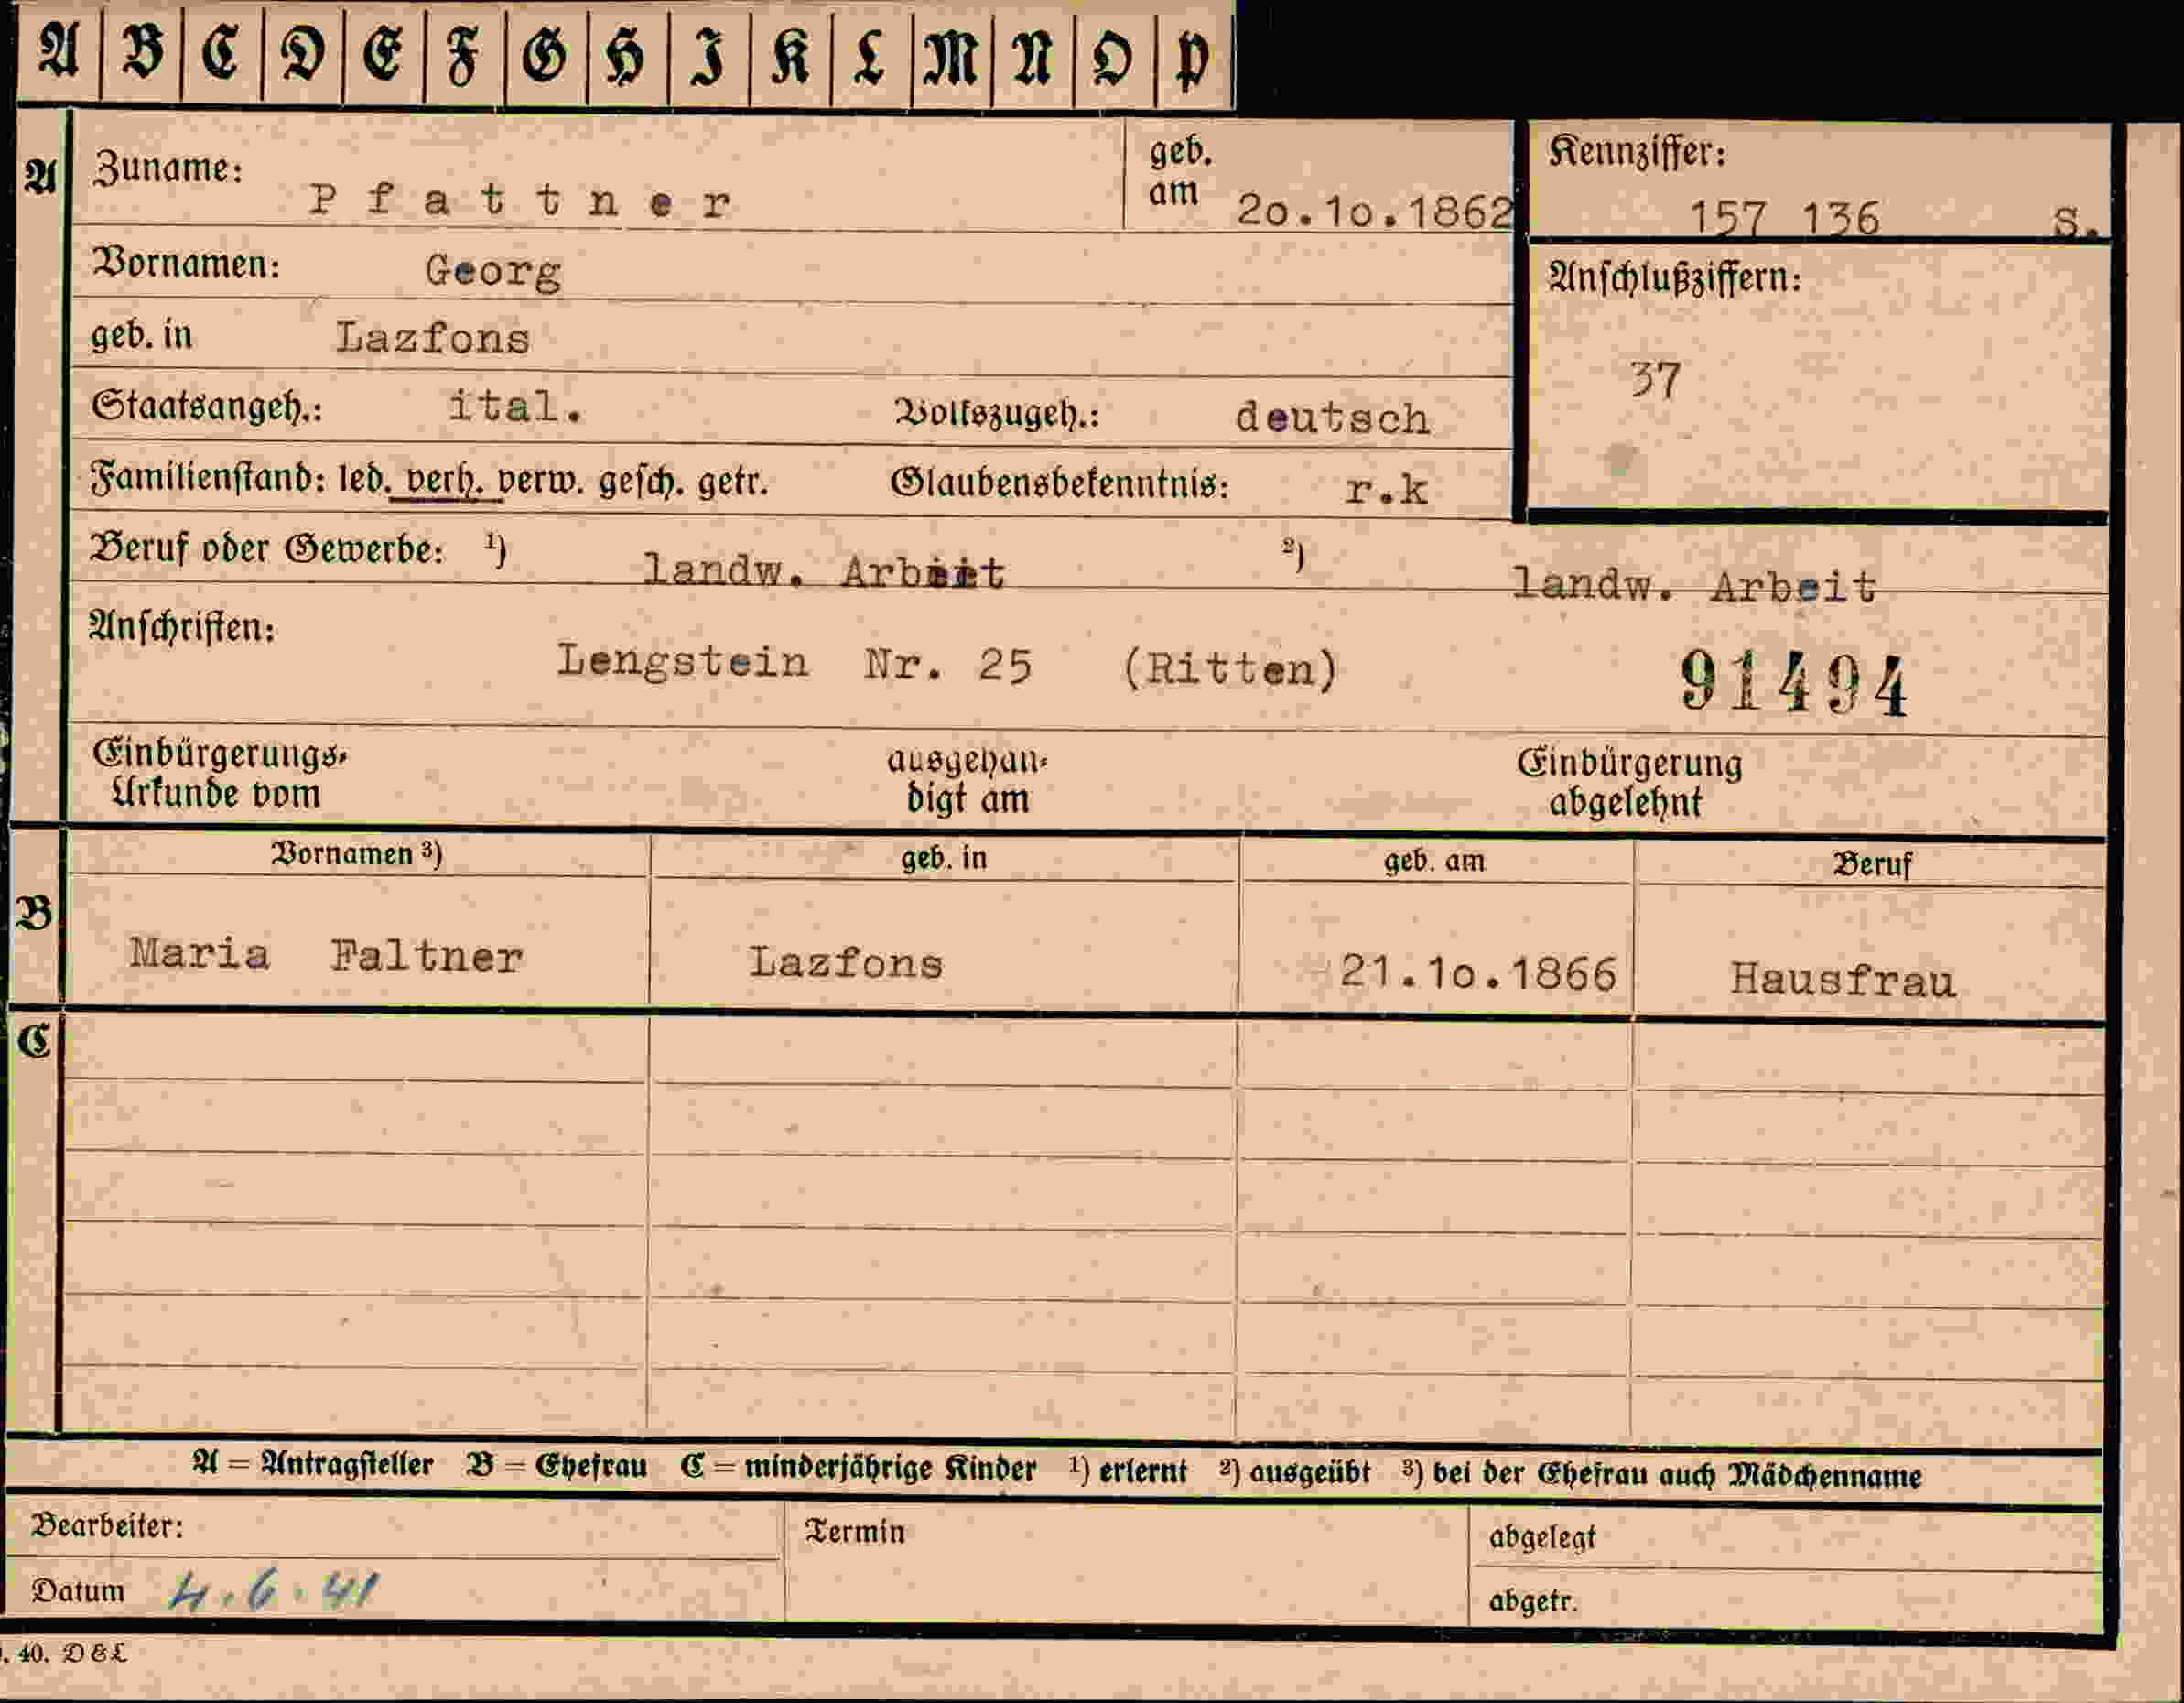 A B C D E F G H I K L M N O P
A Zuname: Pfattner geb. am 2o.1o.1862 Kennziffer: 157 136 S.
Vornamen: Georg Anschlußziffern:
geb. in Lazfons 37
Staatsangeh.: ital. Volkszugeh.: deutsch
Familienstand: led. verh. verw. gesch. getr. Glaubensbekenntnis: r.k
Beruf oder Gewerbe: ¹) landw. Arbeit ²) landw. Arbeit
Anschriften: Lengstein Nr. 25 (Ritten) 91494
Einbürgerungs- ausgehän- Einbürgerung
Urkunde vom digt am abgelehnt
Vornamen ³) geb. in geb. am Beruf
B Maria Faltner Lazfons 21.1o.1866 Hausfrau
C
A = Antragsteller B = Ehefrau C = minderjährige Kinder ¹) erlernt ²) ausgeübt ³) bei der Ehefrau auch Mädchenname
Bearbeiter: Termin abgelegt
Datum 4.6.41 abgetr.
. 40. D & L